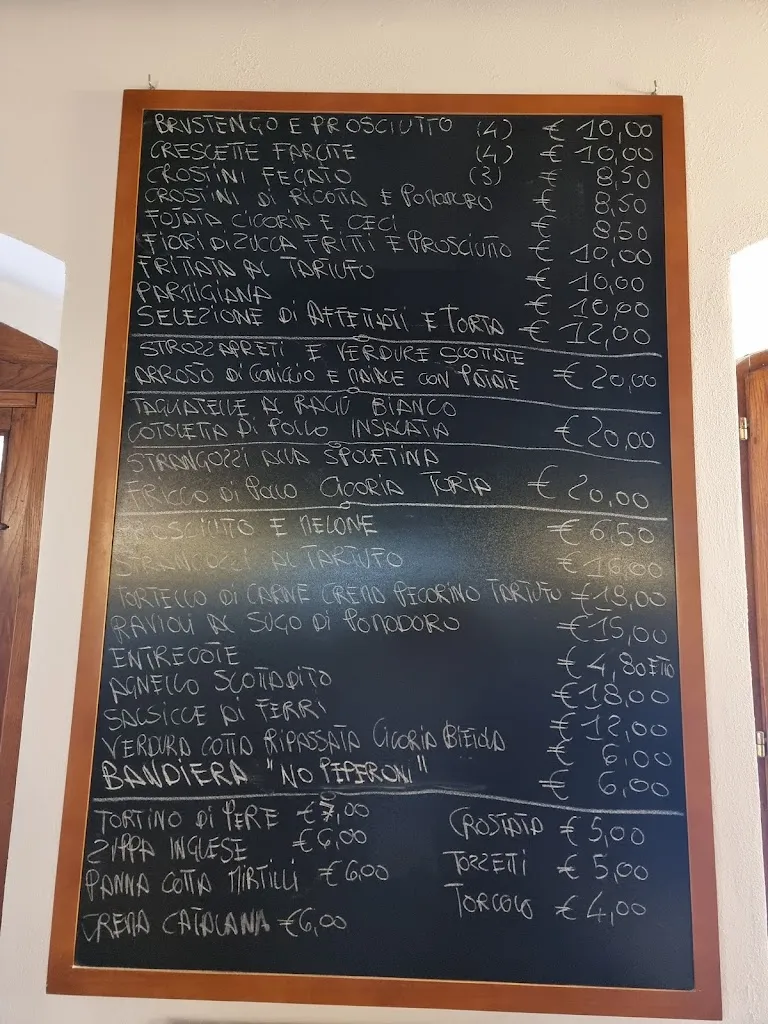 BRUSTENGO E PROSCIUTTO (4) € 10,00
CRESCETTE FARCITE (4) € 10,00
CROSTINI FEGATO (3) € 8,50
CROSTINI DI RICOTTA E POMODORO € 8,50
FOJATA CICORIA E CECI € 8,50
FIORI DI ZUCCA FRITTI E PROSCIUTTO € 10,00
FRITTATA AL TARTUFO € 10,00
PARMIGIANA € 10,00
SELEZIONE DI AFFETTATI E TORTA € 12,00
STROZZAPRETI E VERDURE SCOTTATE
ARROSTO DI CONIGLIO E MAIALE CON PATATE € 20,00
TAGLIATELLE AL RAGÙ BIANCO
COTOLETTA DI POLLO INSALATA € 20,00
STRANGOZZI ALLA SPOLETINA
FRICCO DI POLLO CICORIA TORTA € 20,00
PROSCIUTTO E MELONE € 6,50
STRANGOZZI AL TARTUFO € 16,00
TORTELLO DI CARNE CREMA PECORINO TARTUFO € 18,00
RAVIOLI AL SUGO DI POMODORO € 15,00
ENTRECOTE € 4,80 ETTO
AGNELLO SCOTTADITO € 18,00
SALSICCE AI FERRI € 12,00
VERDURA COTTA RIPASSATA CICORIA BIETOLA € 6,00
BANDIERA "NO PEPERONI" € 6,00
TORTINO DI PERE € 7,00
ZUPPA INGLESE € 6,00
PANNA COTTA MIRTILLI € 6,00
CREMA CATALANA € 6,00
CROSTATA € 5,00
TOZZETTI € 5,00
TORCOLO € 4,00